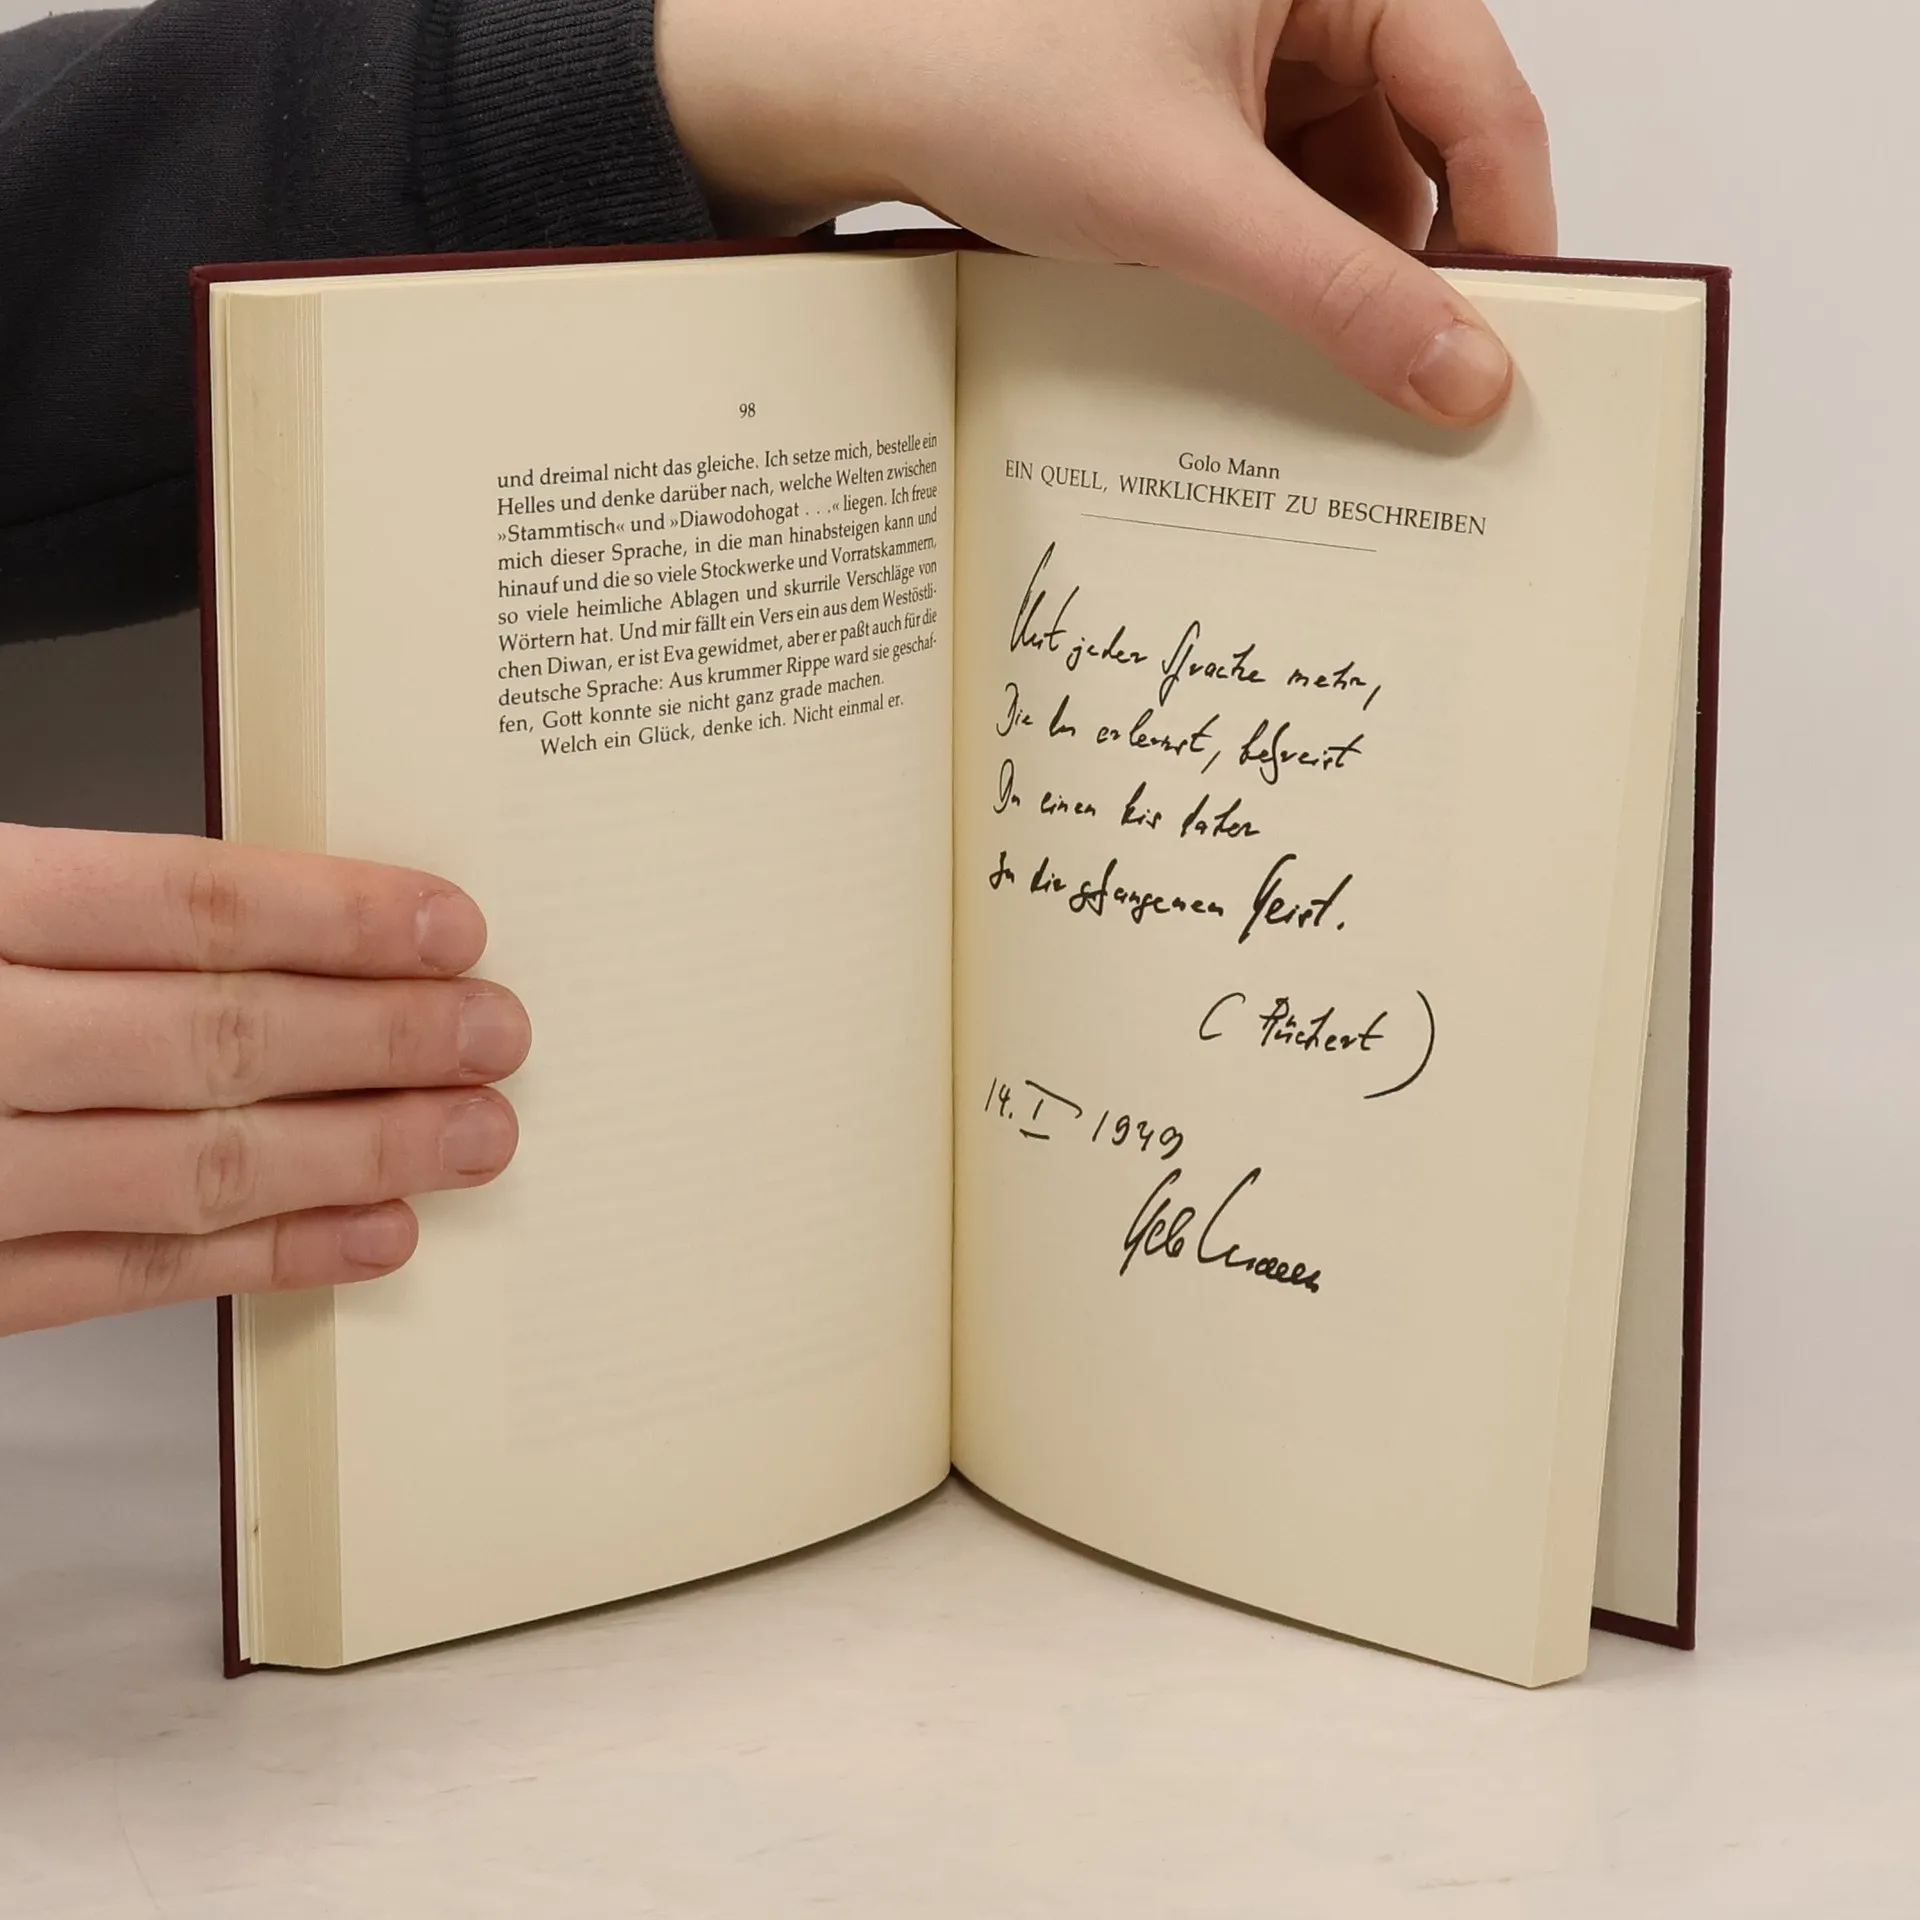 98
und dreimal nicht das gleiche. Ich setze mich, bestelle ein
Helles und denke darüber nach, welche Welten zwischen
»Stammtisch« und »Diawodohogat . . .« liegen. Ich freue
mich dieser Sprache, in die man hinabsteigen kann und
hinauf und die so viele Stockwerke und Vorratskammern,
so viele heimliche Ablagen und skurrile Verschläge von
Wörtern hat. Und mir fällt ein Vers ein aus dem Westöstli-
chen Diwan, er ist Eva gewidmet, aber er paßt auch für die
deutsche Sprache: Aus krummer Rippe ward sie geschaf-
fen, Gott konnte sie nicht ganz grade machen.
Welch ein Glück, denke ich. Nicht einmal er.
Golo Mann
EIN QUELL, WIRKLICHKEIT ZU BESCHREIBEN
Mit jeder Sprache mehr,
Die du erlernst, befreist
Du einen bis daher
In dir gefangenen Geist.
( Rückert )
14. I 1949
Golo Mann